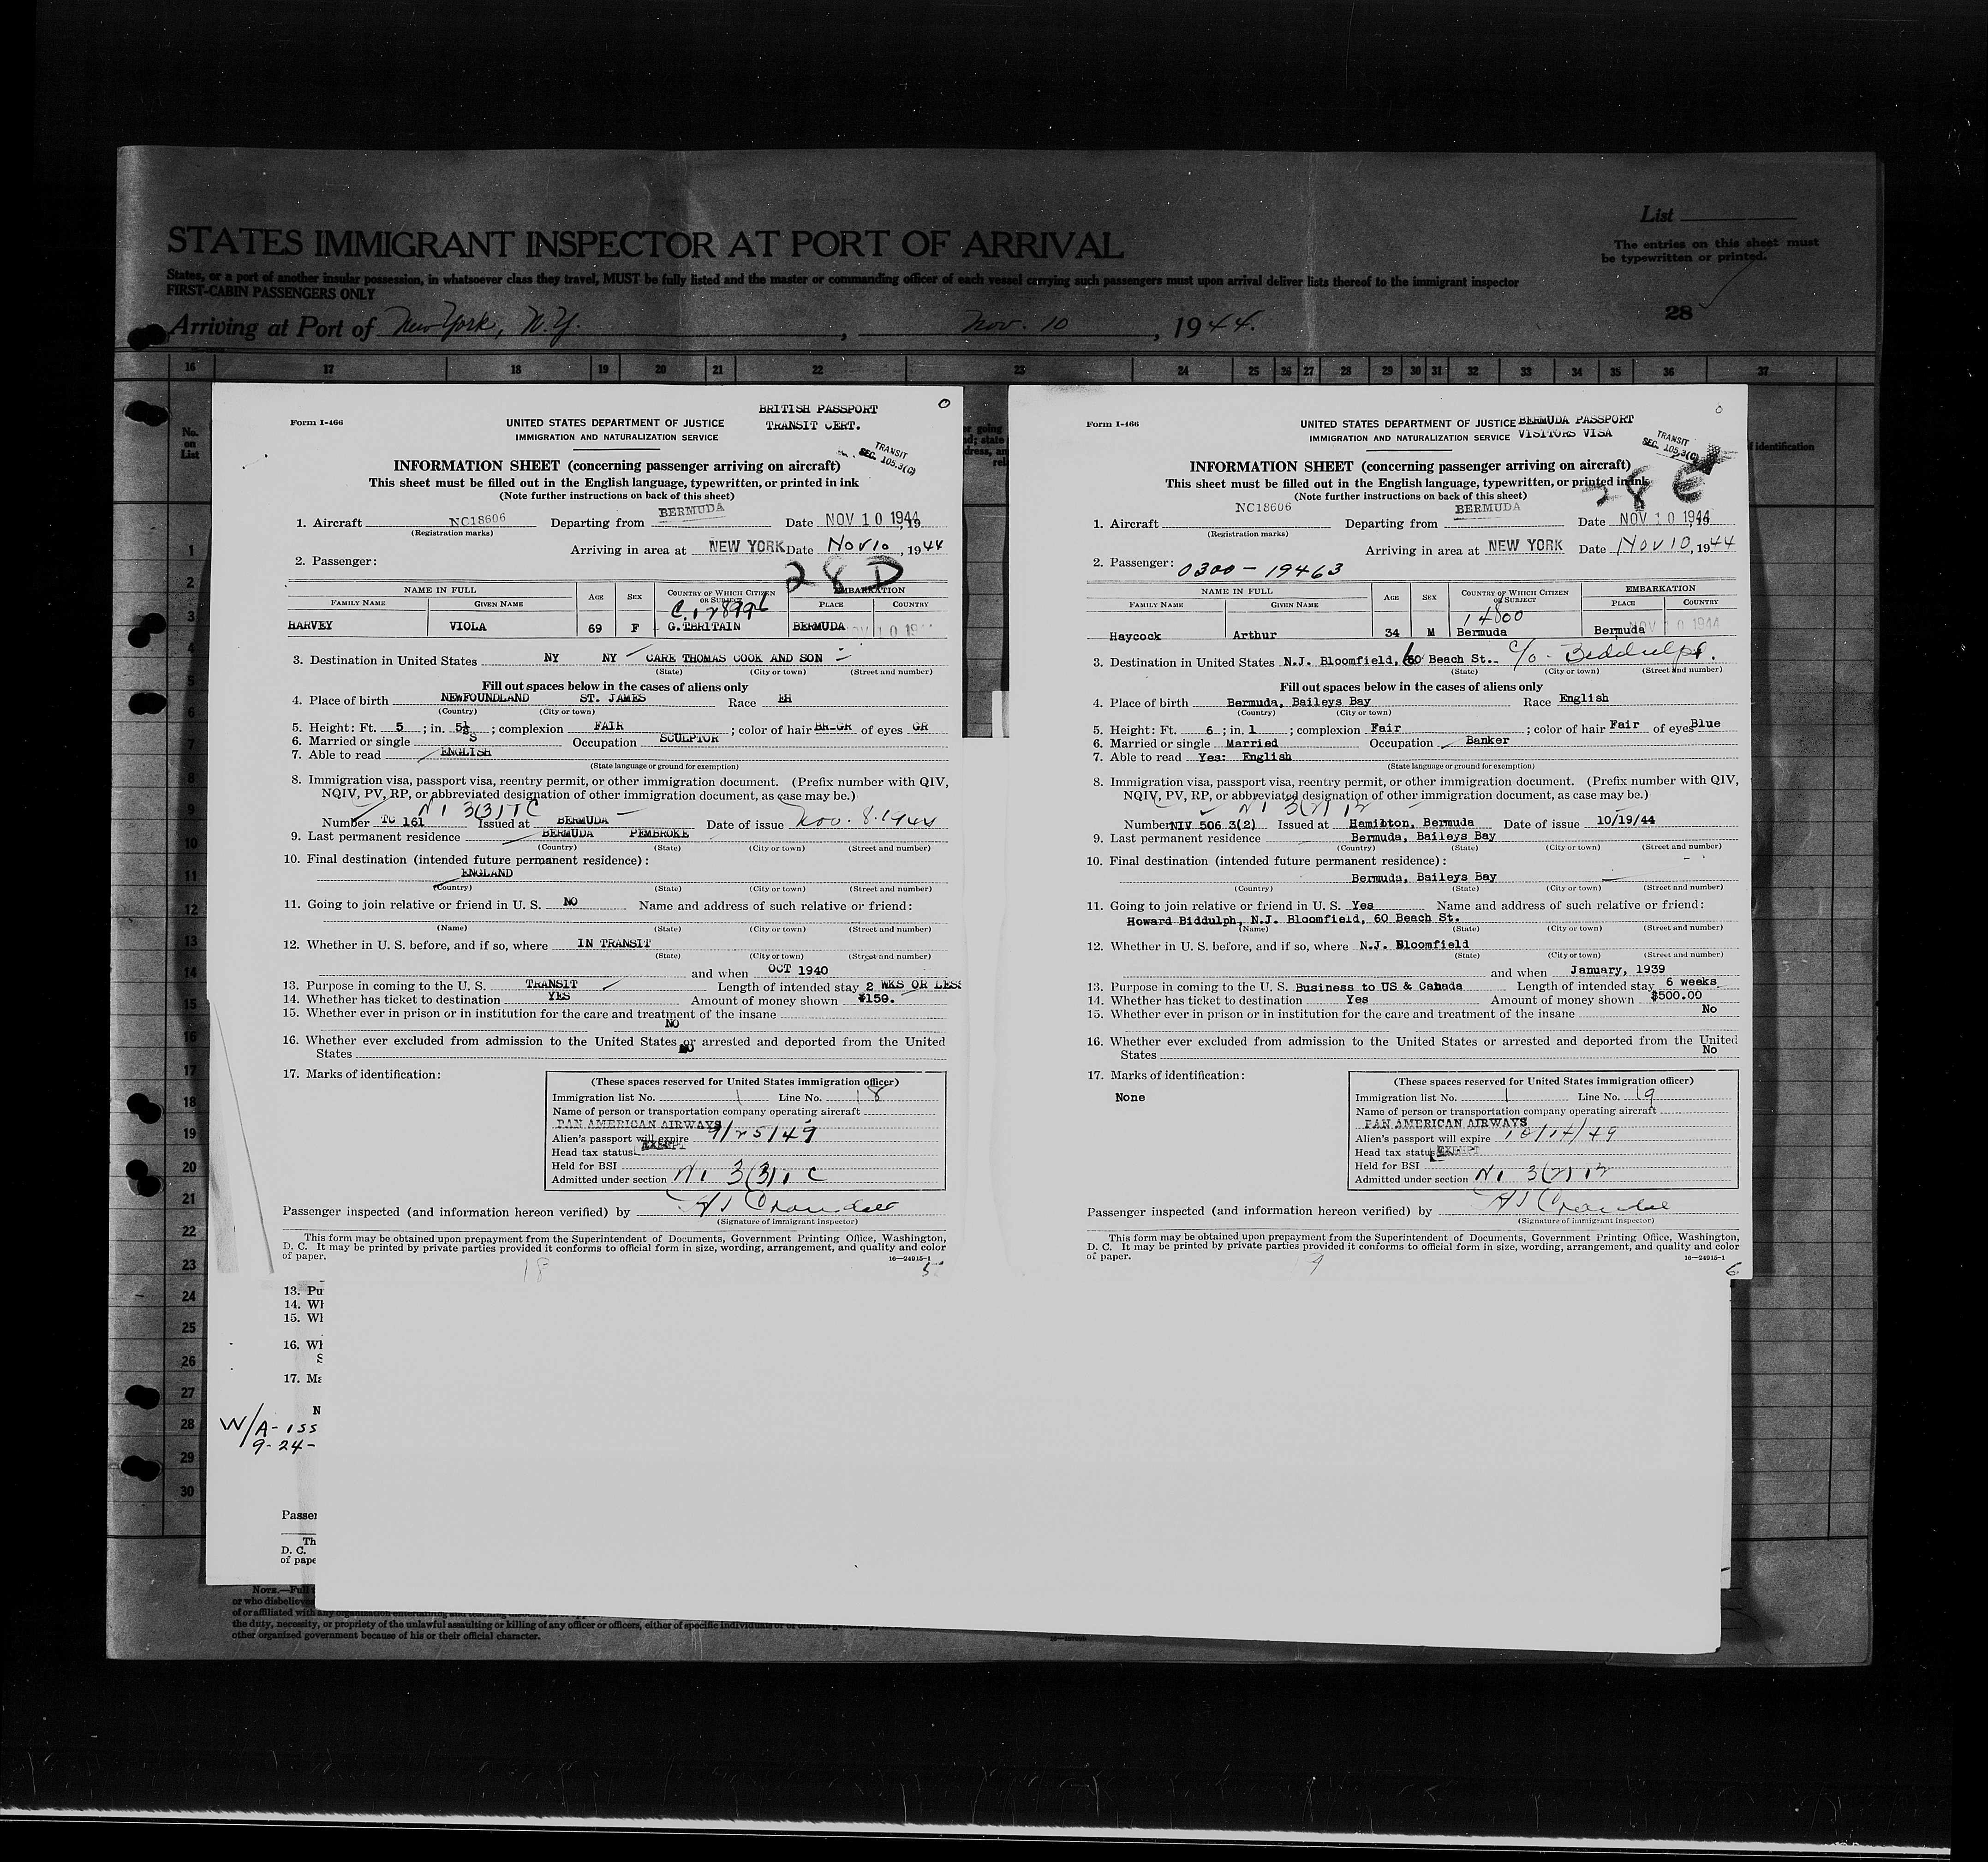 List
STATES IMMIGRANT INSPECTOR AT PORT OF ARRIVAL
The entries on this sheet must
be typewritten or printed.
States, or a port of another insular possession, in whatsoever class they travel, MUST be fully listed and the master or commanding officer of each vessel carrying such passengers must upon arrival deliver lists thereof to the immigrant inspector
FIRST-CABIN PASSENGERS ONLY
28
Arriving at Port of New York, N.Y. , Nov. 10 , 1944.
16 17 18 19 20 21 22 23 24 25 26 27 28 29 30 31 32 33 34 35 36 37
No.
on
List
1
2
3
4
5
6
7
8
9
10
11
12
13
14
15
16
17
18
19
20
21
22
23
24
25
26
27
28
29
30
BRITISH PASSPORT
TRANSIT CERT.
Form I-466
UNITED STATES DEPARTMENT OF JUSTICE
IMMIGRATION AND NATURALIZATION SERVICE
TRANSIT
SEC. 105.3(C)
INFORMATION SHEET (concerning passenger arriving on aircraft)
This sheet must be filled out in the English language, typewritten, or printed in ink
(Note further instructions on back of this sheet)
1. Aircraft NC18606 Departing from BERMUDA Date NOV 10 1944, 19
(Registration marks)
Arriving in area at NEW YORK Date Nov 10, 1944
2. Passenger:
28 D
NAME IN FULL AGE SEX COUNTRY OF WHICH CITIZEN OR SUBJECT EMBARKATION
FAMILY NAME GIVEN NAME PLACE COUNTRY
HARVEY VIOLA 69 F G.TBRITAIN BERMUDA NOV 10 19
3. Destination in United States NY NY CARE THOMAS COOK AND SON
(State) (City or town) (Street and number)
Fill out spaces below in the cases of aliens only
4. Place of birth NEWFOUNDLAND ST. JAMES Race EH
(Country) (City or town)
5. Height: Ft. 5 ; in. 5½ ; complexion FAIR ; color of hair BR-GR of eyes GR
6. Married or single S Occupation SCULPTOR
7. Able to read ENGLISH
(State language or ground for exemption)
8. Immigration visa, passport visa, reentry permit, or other immigration document. (Prefix number with QIV,
NQIV, PV, RP, or abbreviated designation of other immigration document, as case may be.)
N1 3(3) TC
Number TC 161 Issued at BERMUDA Date of issue Nov. 8. 1944
9. Last permanent residence BERMUDA PEMBROKE
(Country) (State) (City or town) (Street and number)
10. Final destination (intended future permanent residence):
ENGLAND
(Country) (State) (City or town) (Street and number)
11. Going to join relative or friend in U. S. NO Name and address of such relative or friend:
(Name) (State) (City or town) (Street and number)
12. Whether in U. S. before, and if so, where IN TRANSIT
(State) (City or town) (Street and number)
and when OCT 1940
13. Purpose in coming to the U. S. TRANSIT Length of intended stay 2 WKS OR LESS
14. Whether has ticket to destination YES Amount of money shown $150.
15. Whether ever in prison or in institution for the care and treatment of the insane
NO
16. Whether ever excluded from admission to the United States or arrested and deported from the United
States NO
17. Marks of identification:
(These spaces reserved for United States immigration officer)
Immigration list No. 1 Line No. 18
Name of person or transportation company operating aircraft
PAN AMERICAN AIRWAYS
Alien's passport will expire 9/25/49
Head tax status EXEMPT
Held for BSI
Admitted under section N1 3(3) 1 C
Passenger inspected (and information hereon verified) by
(Signature of immigrant inspector)
This form may be obtained upon prepayment from the Superintendent of Documents, Government Printing Office, Washington,
D. C. It may be printed by private parties provided it conforms to official form in size, wording, arrangement, and quality and color
of paper. 16—24915-1
18 5
BERMUDA PASSPORT
VISITORS VISA
Form I-466
UNITED STATES DEPARTMENT OF JUSTICE
IMMIGRATION AND NATURALIZATION SERVICE
TRANSIT
SEC. 105.3(C)
28 E
INFORMATION SHEET (concerning passenger arriving on aircraft)
This sheet must be filled out in the English language, typewritten, or printed in ink
(Note further instructions on back of this sheet)
1. Aircraft NC18606 Departing from BERMUDA Date NOV 10 1944, 19
(Registration marks)
Arriving in area at NEW YORK Date Nov 10, 1944
2. Passenger: 0300 - 19463
NAME IN FULL AGE SEX COUNTRY OF WHICH CITIZEN OR SUBJECT EMBARKATION
FAMILY NAME GIVEN NAME PLACE COUNTRY
14800
Haycock Arthur 34 M Bermuda Bermuda NOV 10 1944
3. Destination in United States N.J. Bloomfield, 60 Beach St. c/o - Biddulph.
(State) (City or town) (Street and number)
Fill out spaces below in the cases of aliens only
4. Place of birth Bermuda, Baileys Bay Race English
(Country) (City or town)
5. Height: Ft. 6 ; in. 1 ; complexion Fair ; color of hair Fair of eyes Blue
6. Married or single Married Occupation Banker
7. Able to read Yes: English
(State language or ground for exemption)
8. Immigration visa, passport visa, reentry permit, or other immigration document. (Prefix number with QIV,
NQIV, PV, RP, or abbreviated designation of other immigration document, as case may be.)
N1 3(2) 12
Number NIV 506 3(2) Issued at Hamilton, Bermuda Date of issue 10/19/44
9. Last permanent residence Bermuda, Baileys Bay
(Country) (State) (City or town) (Street and number)
10. Final destination (intended future permanent residence):
Bermuda, Baileys Bay
(Country) (State) (City or town) (Street and number)
11. Going to join relative or friend in U. S. Yes Name and address of such relative or friend:
Howard Biddulph, N.J. Bloomfield, 60 Beach St.
(Name) (State) (City or town) (Street and number)
12. Whether in U. S. before, and if so, where N.J. Bloomfield
(State) (City or town) (Street and number)
and when January, 1939
13. Purpose in coming to the U. S. Business to US & Canada Length of intended stay 6 weeks
14. Whether has ticket to destination Yes Amount of money shown $500.00
15. Whether ever in prison or in institution for the care and treatment of the insane No
16. Whether ever excluded from admission to the United States or arrested and deported from the United
States No
17. Marks of identification:
None
(These spaces reserved for United States immigration officer)
Immigration list No. 1 Line No. 19
Name of person or transportation company operating aircraft
PAN AMERICAN AIRWAYS
Alien's passport will expire 10/14/49
Head tax status EXEMPT
Held for BSI
Admitted under section N1 3(2) 12
Passenger inspected (and information hereon verified) by
(Signature of immigrant inspector)
This form may be obtained upon prepayment from the Superintendent of Documents, Government Printing Office, Washington,
D. C. It may be printed by private parties provided it conforms to official form in size, wording, arrangement, and quality and color
of paper. 16—24915-1
6
13. Pu
14. Wh
15. Wh
16. Wh
S
17. Ma
N
W/A - 155
9-24-
Passer
Th
D. C.
of pape
NOTE.—Full
or who disbelieve
of or affiliated with any organization entertaining and teaching
the duty, necessity, or propriety of the unlawful assaulting or killing of any officer or officers, either of specific individuals or of
other organized government because of his or their official character.